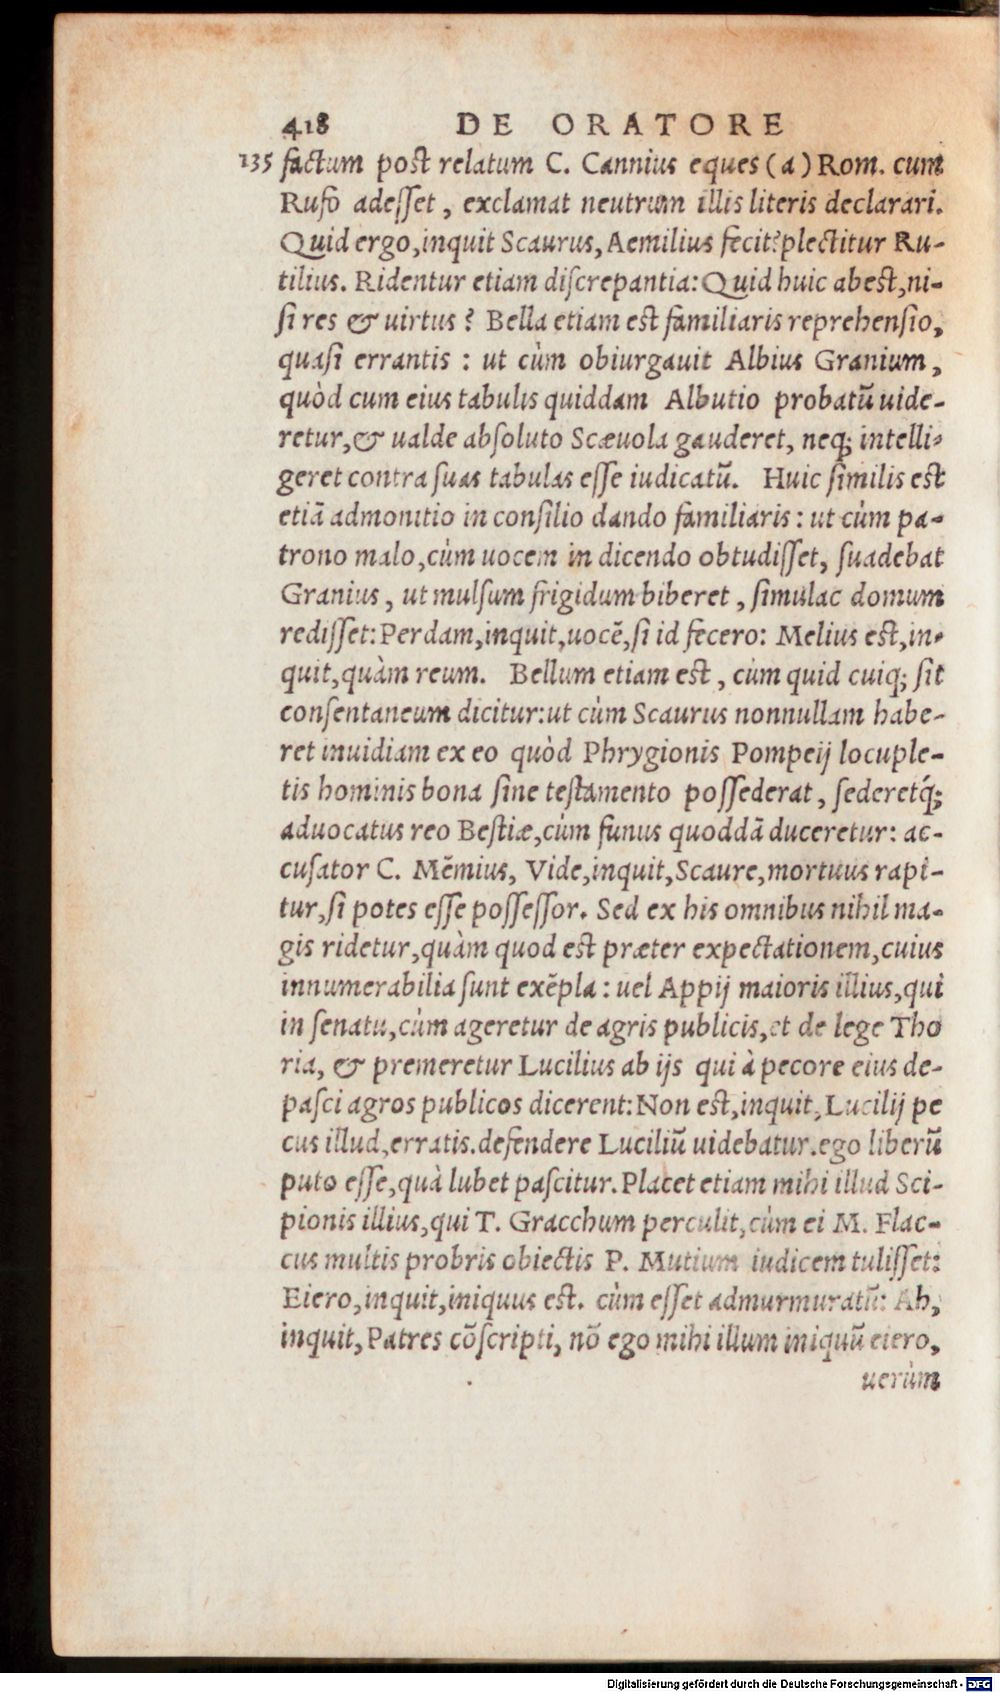 418 DE ORATORE
135 factum post relatum C. Cannius eques (a) Rom. cum
Rufo adeſſet, exclamat neutrum illis literis declarari.
Quid ergo, inquit Scaurus, Aemilius fecit? plectitur Ru-
tilius. Ridentur etiam diſcrepantia: Quid huic abest, ni-
ſi res & uirtus? Bella etiam est familiaris reprehenſio,
quaſi errantis : ut cùm obiurgauit Albius Granium,
quòd cum eius tabulis quiddam Albutio probatū uide-
retur, & ualde abſoluto Scæuola gauderet, neq; intelli-
geret contra ſuas tabulas eſſe iudicatū. Huic ſimilis est
etiā admonitio in conſilio dando familiaris : ut cùm pa-
trono malo, cùm uocem in dicendo obtudiſſet, ſuadebat
Granius, ut mulſum frigidum biberet, ſimulac domum
rediſſet: Perdam, inquit, uocē, ſi id fecero: Melius est, in-
quit, quàm reum. Bellum etiam est, cùm quid cuiq; ſit
conſentaneum dicitur: ut cùm Scaurus nonnullam habe-
ret inuidiam ex eo quòd Phrygionis Pompeij locuple-
tis hominis bona ſine testamento poſſederat, ſederetq́;
aduocatus reo Bestiæ, cùm funus quoddā duceretur: ac-
cuſator C. Mēmius, Vide, inquit, Scaure, mortuus rapi-
tur, ſi potes eſſe poſſeſſor. Sed ex his omnibus nihil ma-
gis ridetur, quàm quod est præter expectationem, cuius
innumerabilia ſunt exēpla : uel Appij maioris illius, qui
in ſenatu, cùm ageretur de agris publicis, et de lege Tho
ria, & premeretur Lucilius ab ijs qui à pecore eius de-
paſci agros publicos dicerent: Non est, inquit, Lucilij pe
cus illud, erratis. defendere Luciliū uidebatur. ego liberū
puto eſſe, quà lubet paſcitur. Placet etiam mihi illud Sci-
pionis illius, qui T. Gracchum perculit, cùm ei M. Flac-
cus multis probris obiectis P. Mutium iudicem tuliſſet:
Eiero, inquit, iniquus est. cùm eſſet admurmuratū: Ah,
inquit, Patres cōſcripti, nō ego mihi illum iniquū eiero,
uerùm
Digitalisierung gefördert durch die Deutsche Forschungsgemeinschaft - DFG